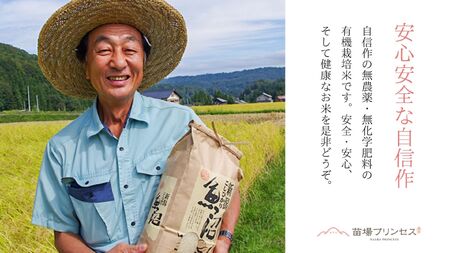 安心安全な自信作
自信作の無農薬・無化学肥料の
有機栽培米です。安全・安心、
そして健康なお米を是非どうぞ。
魚沼
苗場プリンセス
NAEBA PRINCESS